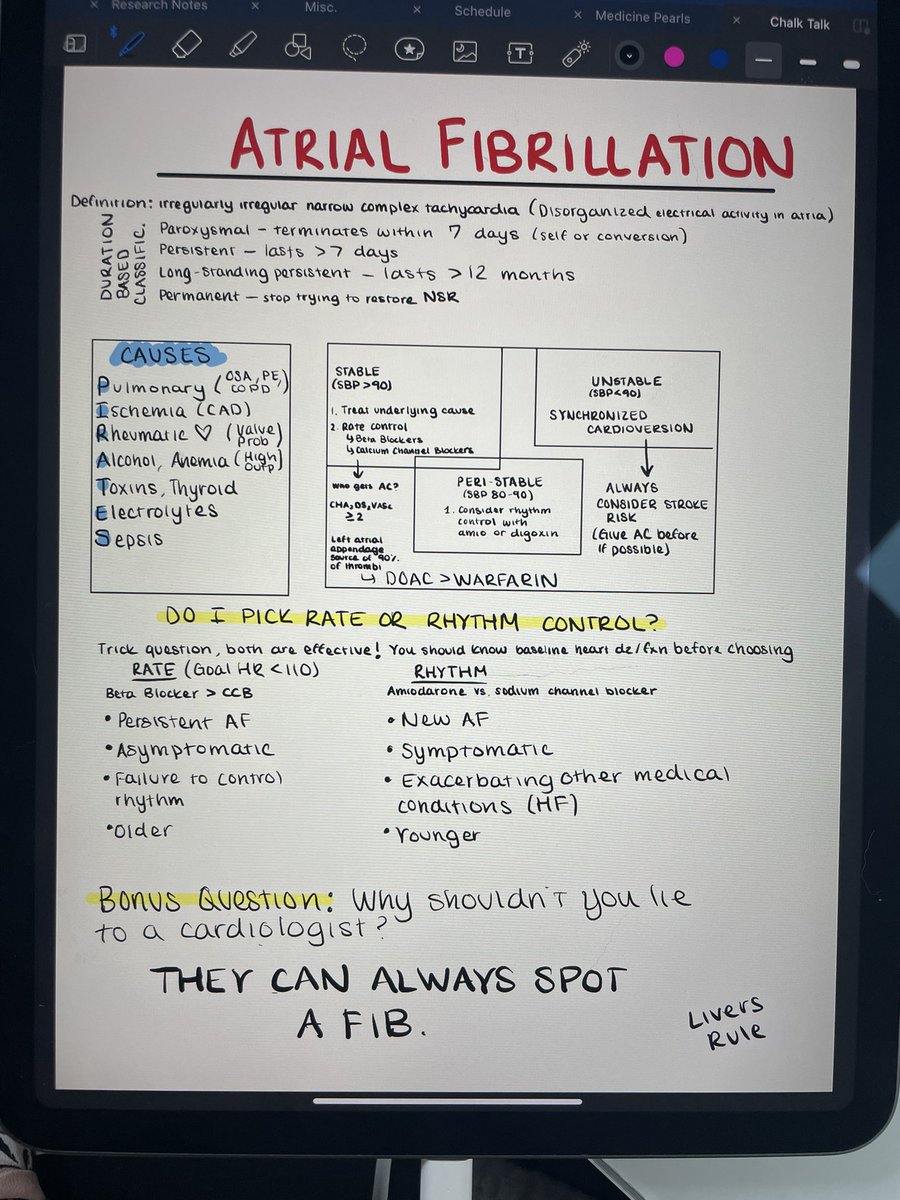 Research Notes
Misc.
Schedule
Medicine Pearls
Chalk Talk
ATRIAL FIBRILLATION
Definition: irregularly irregular narrow complex tachycardia (Disorganized electrical activity in atria)
DURATION
BASED
CLASSIFIC.
Paroxysmal – terminates within 7 days (self or conversion)
Persistent – lasts >7 days
Long-standing persistent – lasts >12 months
Permanent – stop trying to restore NSR
CAUSES
Pulmonary (OSA, PE,
COPD)
Ischemia (CAD)
Rheumatic ♡ (Valve
Prob)
Alcohol, Anemia (High
Outp)
Toxins, Thyroid
Electrolytes
Sepsis
STABLE
(SBP >90)
1. Treat underlying cause
2. Rate control
↳ Beta Blockers
↳ Calcium Channel Blockers
Who gets AC?
CHA₂DS₂VASc
≥2
Left atrial
appendage
source of 90%
of thrombi
↳ DOAC > WARFARIN
PERI-STABLE
(SBP 80-90)
1. Consider rhythm
control with
amio or digoxin
UNSTABLE
(SBP<90)
SYNCHRONIZED
CARDIOVERSION
ALWAYS
CONSIDER STROKE
RISK
(Give AC before
if possible)
DO I PICK RATE OR RHYTHM CONTROL?
Trick question, both are effective! You should know baseline heart dz/fxn before choosing
RATE (Goal HR <110)
Beta Blocker > CCB
• Persistent AF
• Asymptomatic
• Failure to control
rhythm
• Older
RHYTHM
Amiodarone vs. sodium channel blocker
• New AF
• Symptomatic
• Exacerbating other medical
conditions (HF)
• Younger
Bonus Question: Why shouldn't you lie
to a cardiologist?
THEY CAN ALWAYS SPOT
A FIB.
Livers
Rule